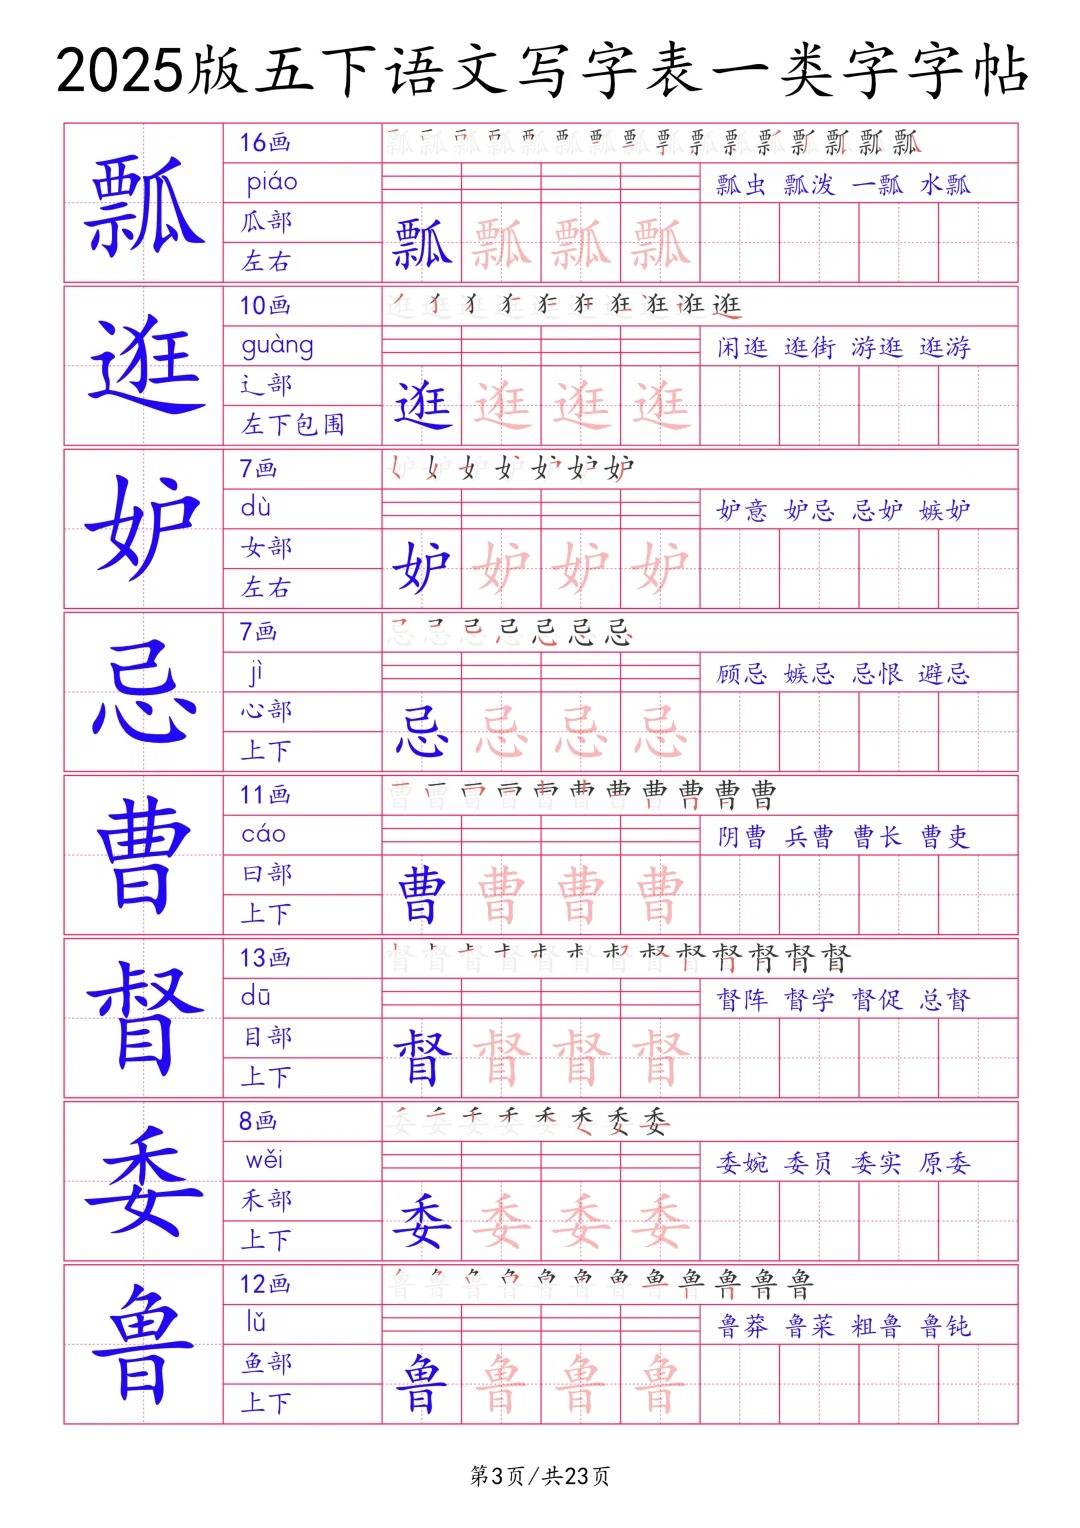 2025版五下语文写字表一类字字帖
瓢
16画
piáo
瓢虫 瓢泼 一瓢 水瓢
瓜部
左右
瓢 瓢 瓢 瓢
逛
10画
guàng
闲逛 逛街 游逛 逛游
辶部
左下包围
逛 逛 逛 逛
妒
7画
dù
妒意 妒忌 忌妒 嫉妒
女部
左右
妒 妒 妒 妒
忌
7画
jì
顾忌 嫉忌 忌恨 避忌
心部
上下
忌 忌 忌 忌
曹
11画
cáo
阴曹 兵曹 曹长 曹吏
曰部
上下
曹 曹 曹 曹
督
13画
dū
督阵 督学 督促 总督
目部
上下
督 督 督 督
委
8画
wěi
委婉 委员 委实 原委
禾部
上下
委 委 委 委
鲁
12画
lǔ
鲁莽 鲁菜 粗鲁 鲁钝
鱼部
上下
鲁 鲁 鲁 鲁
第3页/共23页